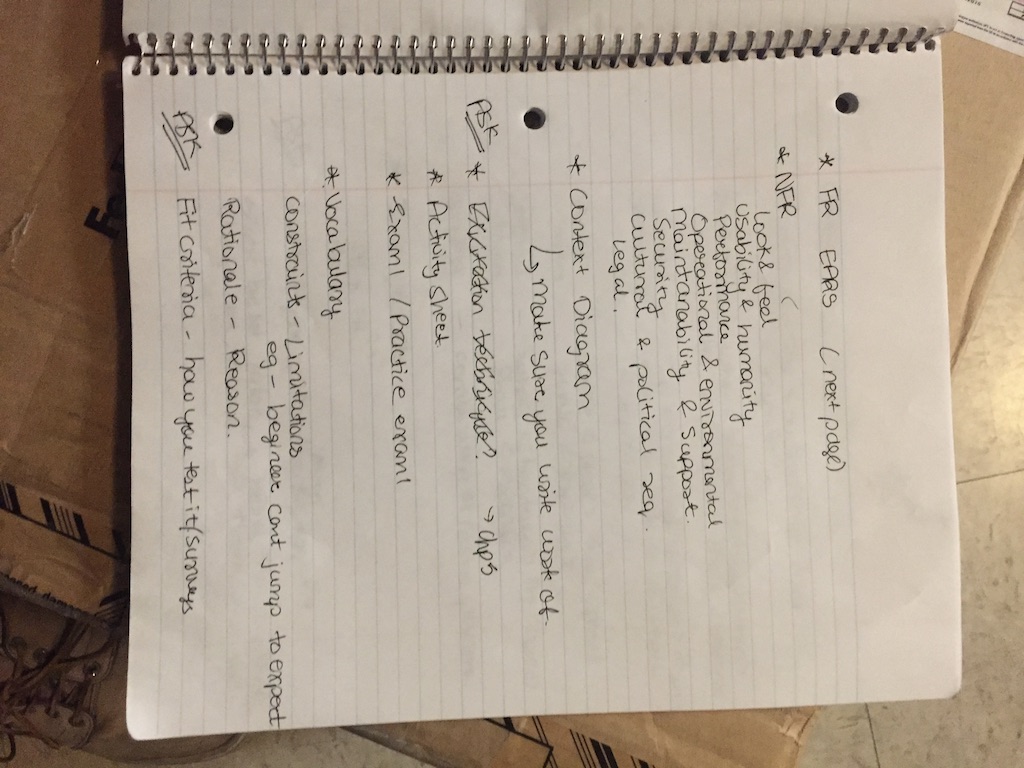 * FR EARS (next page)
* NFR
Look & feel
Usability & humanity
Performance
Operational & environmental
Maintanability & Support.
Security
Cultural & political req.
Legal.
* Context Diagram
↳ make sure you write work of.
ASK * technique? → chp5
* Activity Sheet
* Exam1 / Practice exam1
* Vocabulary
constraints - Limitations
eg - beginner cant jump to expert
Rationale - Reason.
ASK Fit criteria - how you test it/surveys